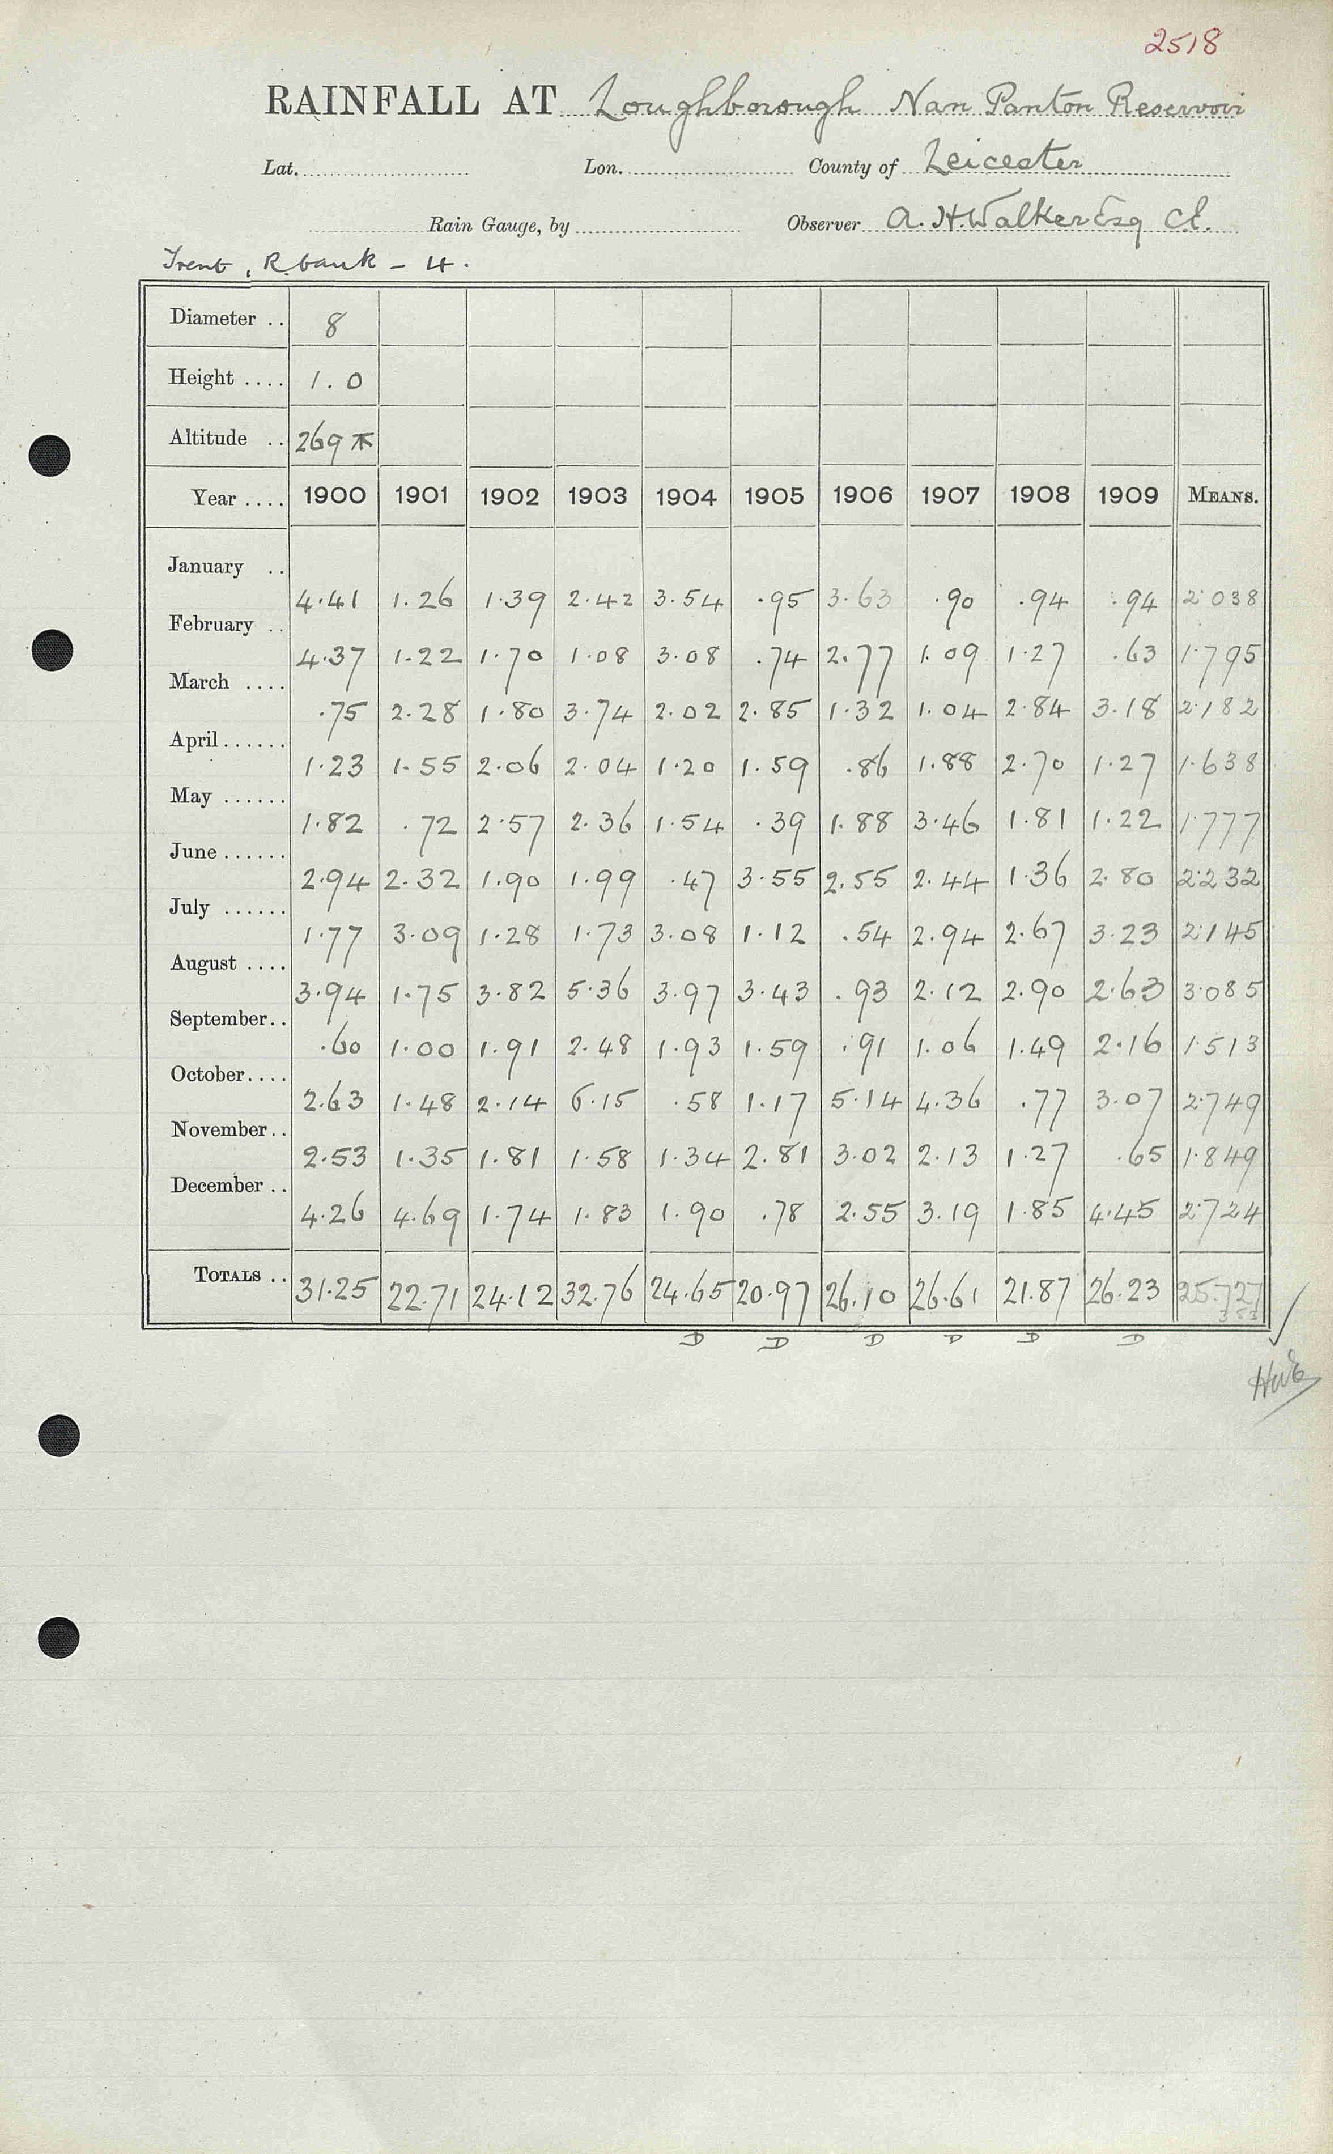 2518
RAINFALL AT Loughborough Nan Panton Reservoir
Lat. Lon. County of Leicester
Rain Gauge, by Observer A. H. Walker Esq CE.
Trent, R. bank - 4.
Diameter .. 8
Height .... 1.0
Altitude .. 269
Year .... 1900 1901 1902 1903 1904 1905 1906 1907 1908 1909 MEANS.
January .. 4.41 1.26 1.39 2.42 3.54 .95 3.63 .90 .94 .94 2.038
February .. 4.37 1.22 1.70 1.08 3.08 .74 2.77 1.09 1.27 .63 1.795
March .... .75 2.28 1.80 3.74 2.02 2.85 1.32 1.04 2.84 3.18 2.182
April ...... 1.23 1.55 2.06 2.04 1.20 1.59 .86 1.88 2.70 1.27 1.638
May ...... 1.82 .72 2.57 2.36 1.54 .39 1.88 3.46 1.81 1.22 1.777
June ...... 2.94 2.32 1.90 1.99 .47 3.55 2.55 2.44 1.36 2.80 2.232
July ...... 1.77 3.09 1.28 1.73 3.08 1.12 .54 2.94 2.67 3.23 2.145
August .... 3.94 1.75 3.82 5.36 3.97 3.43 .93 2.12 2.90 2.63 3.085
September.. .60 1.00 1.91 2.48 1.93 1.59 .91 1.06 1.49 2.16 1.513
October.... 2.63 1.48 2.14 6.15 .58 1.17 5.14 4.36 .77 3.07 2.749
November.. 2.53 1.35 1.81 1.58 1.34 2.81 3.02 2.13 1.27 .65 1.849
December .. 4.26 4.69 1.74 1.83 1.90 .78 2.55 3.19 1.85 4.45 2.724
TOTALS .. 31.25 22.71 24.12 32.76 24.65 20.97 26.10 26.61 21.87 26.23 25.727
D D D D D D